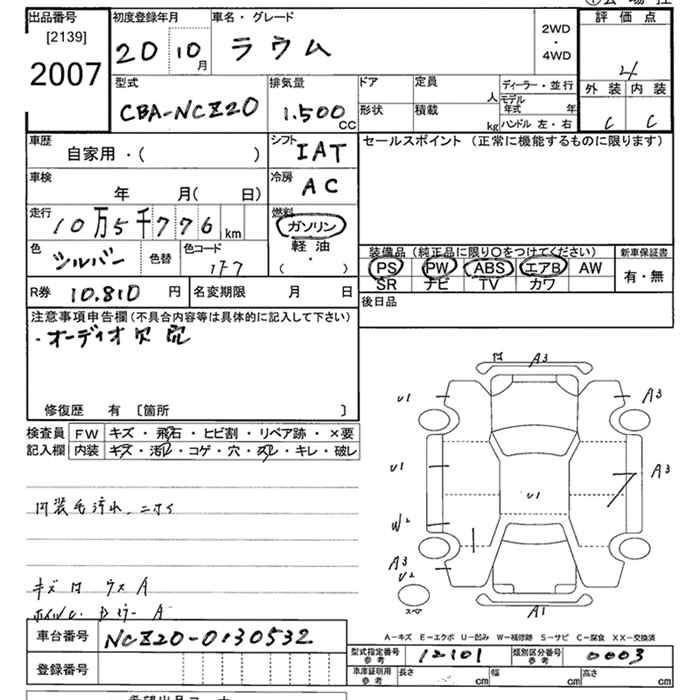 出品番号 初度登録年月 車名・グレード 評価点
[2139] 20 10月 ラウム 2WD・4WD 4
2007
型式 排気量 ドア 定員 人 ディーラー・並行 外装 内装
CBA-NCZ20 1.500CC 形状 積載 kg モデル年式 年 C C
ハンドル 左・右
車歴 シフト セールスポイント (正常に機能するものに限ります)
自家用・( ) IAT
車検 冷房
年 月( 日) AC
走行 燃料
10万5千776km ガソリン
色 色替 色コード 軽油 装備品(純正品に限り〇をつけてください) 新車保証書
シルバー 1F7 ・( ) PS・PW・ABS・エアB・AW 有・無
SR ナビ TV カワ
R券 10.810円 名変期限 月 日 後日品
注意事項申告欄(不具合内容等は具体的に記入して下さい)
・オーディオ欠品
修復歴 有 [箇所 ]
A3
U1 A3
検査員 FW キズ・飛石・ヒビ割・リペア跡・×要
記入欄 内装 キズ・汚れ・コゲ・穴・スレ・キレ・破レ
U1 U1 A3
内装毛汚れ、ニオイ
W2
A3
U2
キズ ウス A
スペア A1
A-キズ E-エクボ U-凹み W-補修跡 S-サビ C-腐食 XX-交換済
車台番号 NCZ20-0130532
型式指定番号 参考 12101 類別区分番号 参考 0003
登録番号 車庫証明用 参考 長さ cm 幅 cm 高さ cm